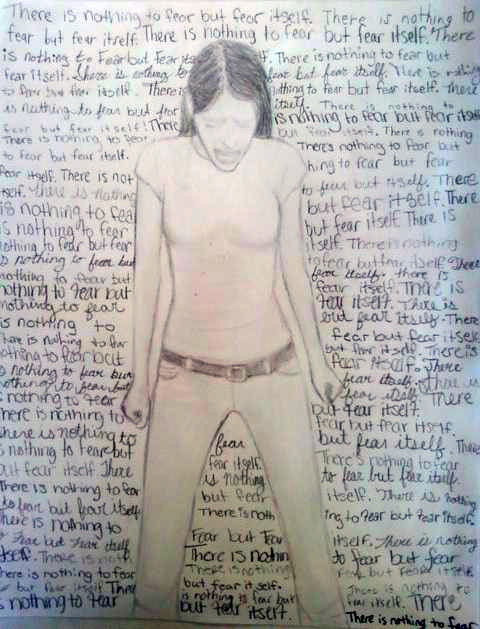 There is nothing to fear but fear itself. There is nothing to
fear but fear itself. There is nothing to fear but fear itself. There
is nothing to fear but Fear itself. There is nothing to fear but
fear itself. There is nothing to fear but fear itself. There is nothing
to fear but fear itself. There is nothing to fear but fear itself. There
is nothing to fear but fear itself. There is nothing to
fear but fear itself. There is nothing to fear but fear itself
There is nothing to fear but fear itself. There is nothing
to fear but fear itself. There's nothing to fear but
fear itself. There is not hing to fear but fear
itself. There is nothing to fear but itself. There
is nothing to fea but fear itself. There
is nothing to fear but fear itself There is
nothing to fear but fear itself. There is nothing
is nothing to fear but to fear but fear itself There
nothing to fear but fear itself. there is
nothing to Fear but fear itself. There is
nothing to fear fear itself. There is
is nothing to but fear itself. There
There is nothing to fear fear but fear itself
nothing to fear but but fear itself. There is
is nothing to fear but fear itself. There
nothing to fear but fear itself. There is
is nothing to fear fear itself. There
here is nothing to but fear itself.
there is nothing to fear fear but fear itself.
is nothing to fear but but fear itself. There
but fear itself There fear itself. There's nothing to fear
There is nothing to fear is nothing to fear but fear itself.
to fear but fear itself but fear itself. There is nothing
There is nothing to There is noth ing to fear but fear itself.
fear but fear itself Fear but Fear itself. There is nothing
itself. There is There is nothin to fear but fear
here is nothing to fear There is nothing fear but Fear itself
but fear itself There but fear itself. There is nothing to
is nothing to fear is nothing to fear but fear itself. There
but fear itself. There is nothing to fear